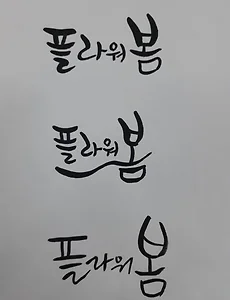 플라워봄
플라워봄
플라워봄